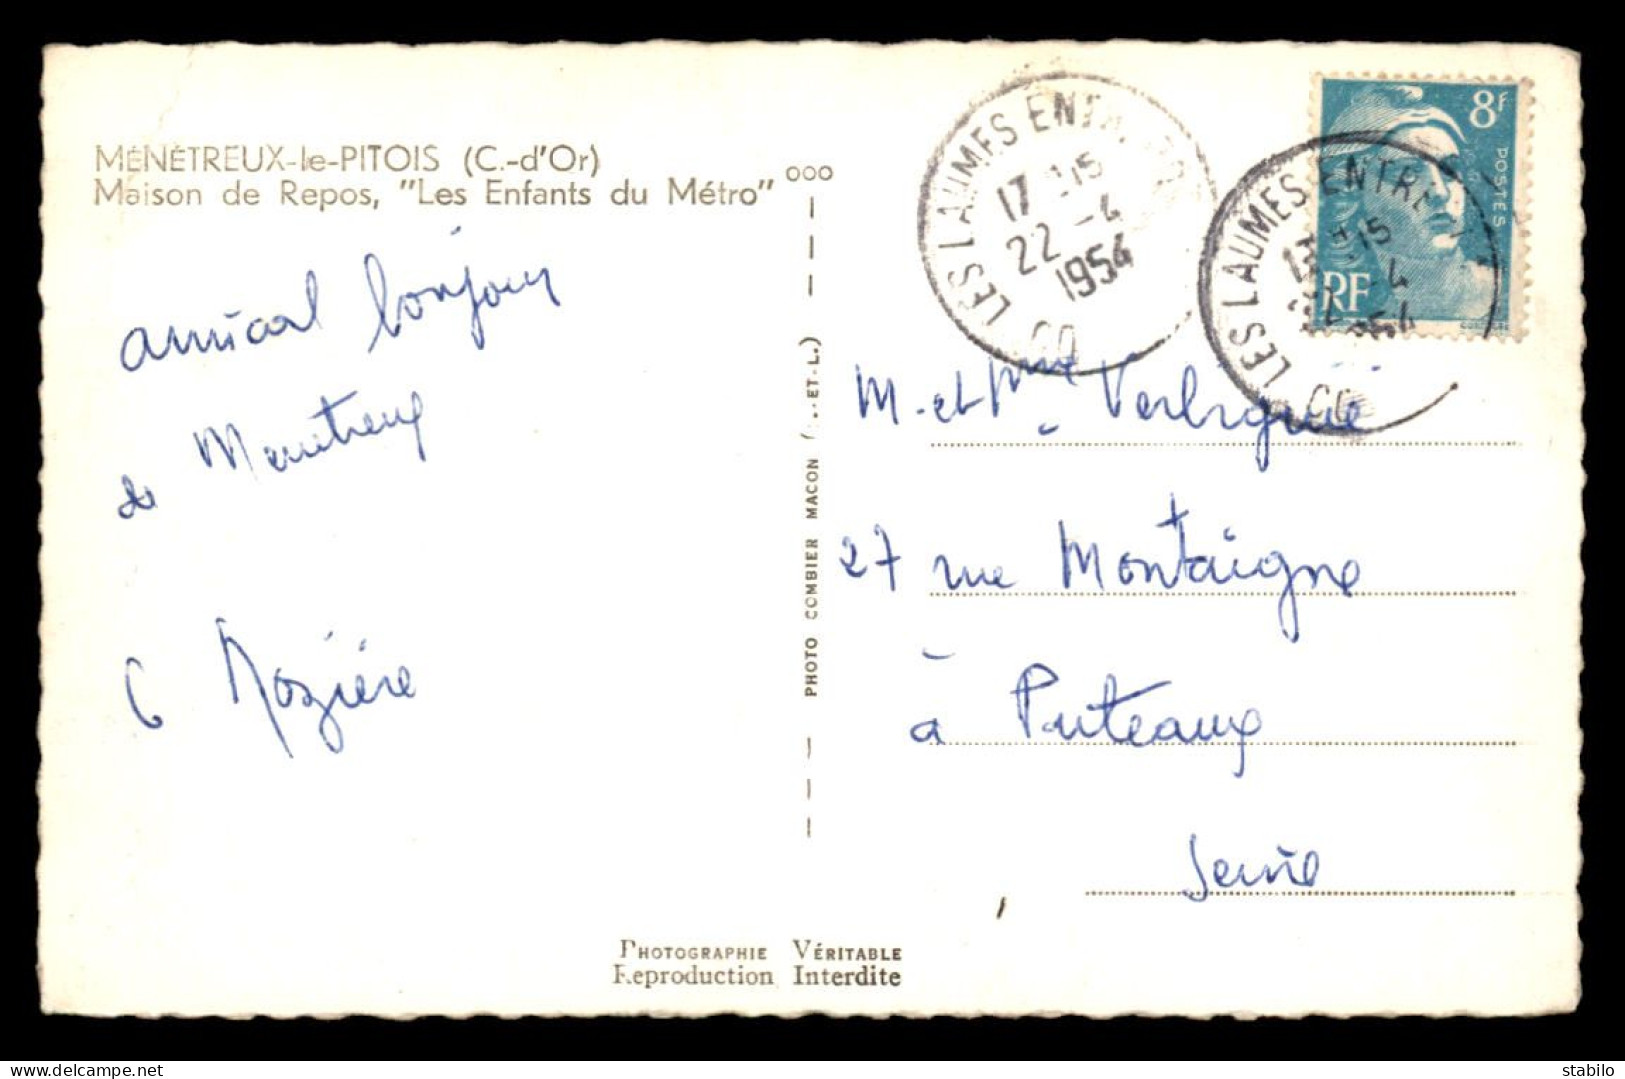 MÉNÉTREUX-le-PITOIS (C.-d'Or)
Maison de Repos, "Les Enfants du Métro"
ooo
amical bonjour
de Menetreux
G Rozière
PHOTO COMBIER MACON (S.-ET-L.)
LES LAUMES
17 15
22 -4
1954
CO
LES LAUMES ENTRE
15
-4
54
CO
8F
POSTES
RF
M. et Mme
27 rue Montaigne
à Puteaux
Seine
PHOTOGRAPHIE VÉRITABLE
Reproduction Interdite
delcampe.net
stabilo